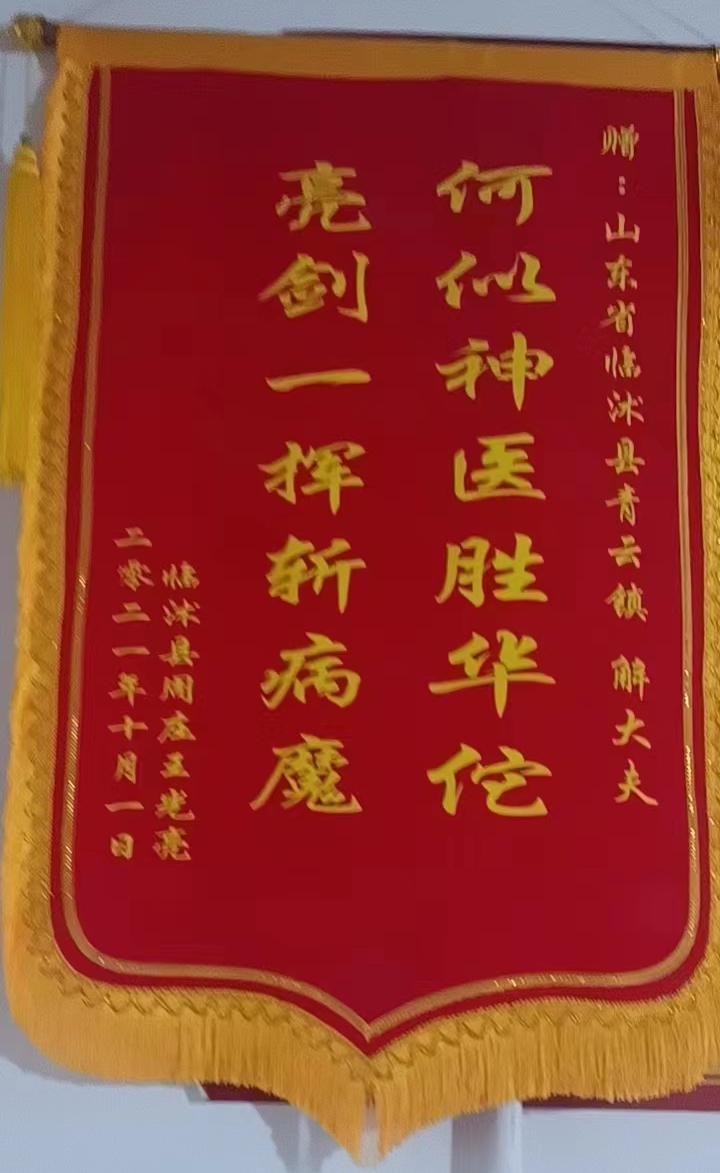 赠：山东省临沭县青云镇 解大夫
何似神医胜华佗
亮剑一挥斩病魔
临沭县周庄王光亮
二零二一年十月一日